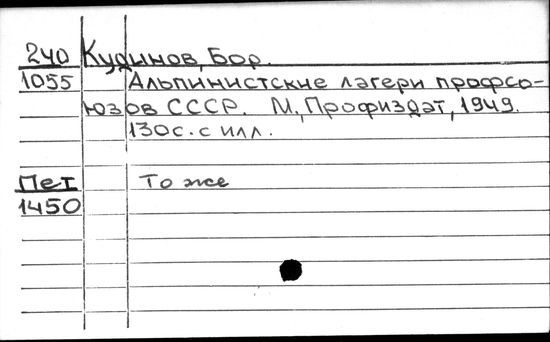 240 Кудинов, Бор.
1055 Альпинистские лагери профсо-
юзов СССР. М., Профиздат, 1949.
130с. с илл.
Пет То же
1450